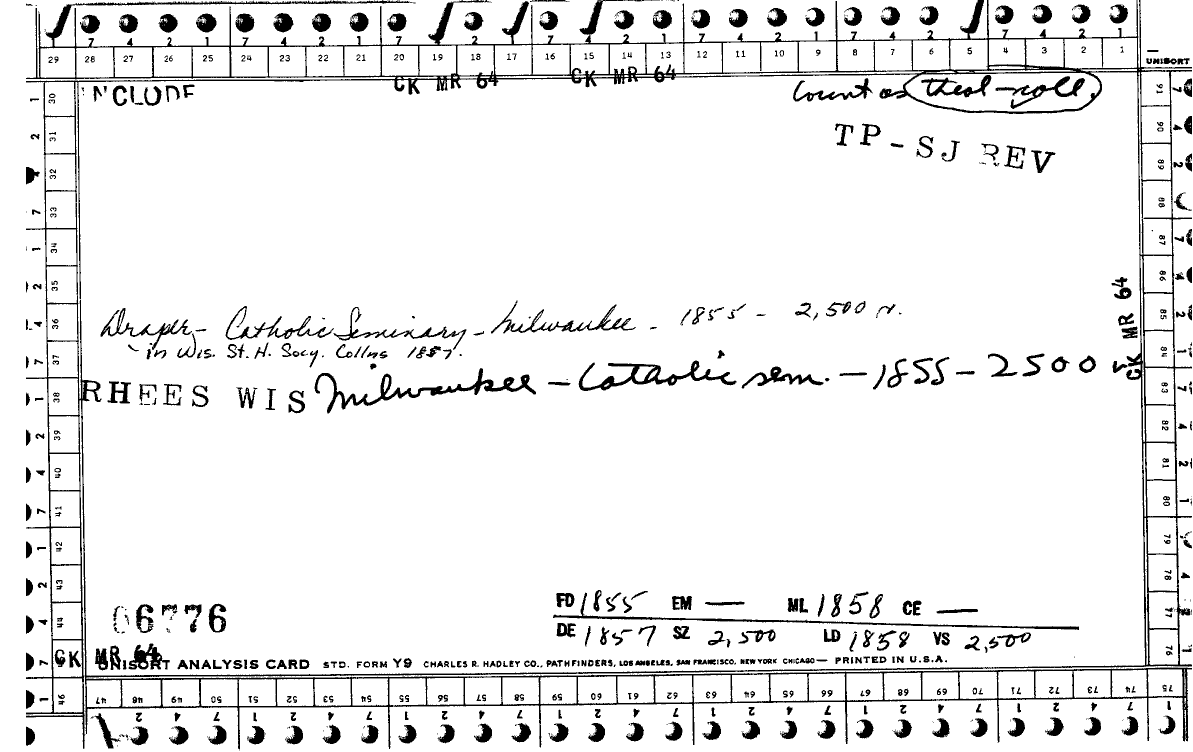 7 4 2 1 7 4 2 1 7 4 2 1 7 4 2 1 7 4 2 1
29 28 27 26 25 24 23 22 21 20 19 18 17 16 15 14 13 12 11 10 9 8 7 6 5 4 3 2 1
UNISORT
CK MR 64 CK MR 64
INCLUDE
Count as theol-coll.
TP-SJ REV
Draper- Catholic Seminary-Milwaukee - 1855 - 2,500 v.
in Wis. St. H. Socy. Collns 1857.
RHEES WIS Milwaukee - Catholic sem. - 1855 - 2500
CK MR 64
06776
FD 1855 EM — ML 1858 CE —
DE 1857 SZ 2,500 LD 1858 VS 2,500
CK MR 64
UNISORT ANALYSIS CARD STD. FORM Y9 CHARLES R. HADLEY CO., PATHFINDERS, LOS ANGELES, SAN FRANCISCO, NEW YORK CHICAGO— PRINTED IN U.S.A.
47 48 49 50 51 52 53 54 55 56 57 58 59 60 61 62 63 64 65 66 67 68 69 70 71 72 73 74 75